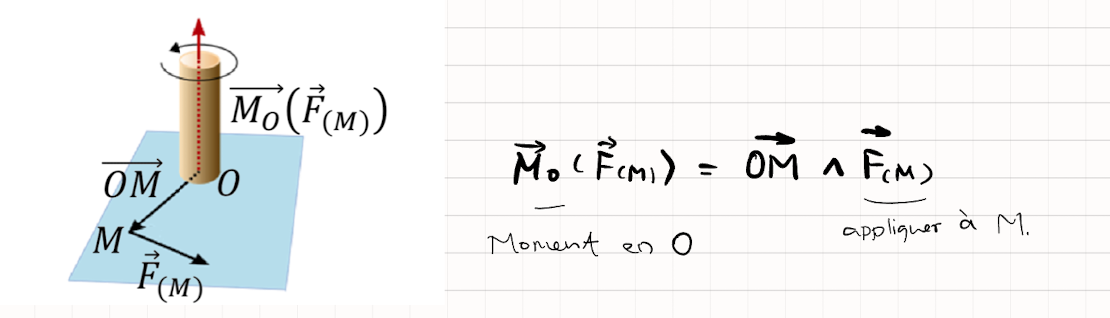 $\overrightarrow{M_O}(\vec{F}_{(M)})$
$\overrightarrow{OM}$ O
M
$\vec{F}_{(M)}$
$\vec{M}_o(\vec{F}_{(M)}) = \overrightarrow{OM} \wedge \vec{F}_{(M)}$
Moment en O
appliquer à M.